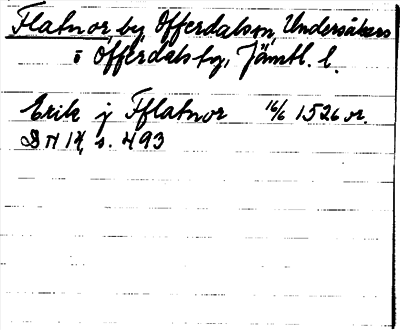 Flatnor, by, Offerdalssn, Undersåkers
i Offerdalsby, Jämtl. l.
Erik j Fflatnor 16/6 1526 or.
DN 14, s. 493